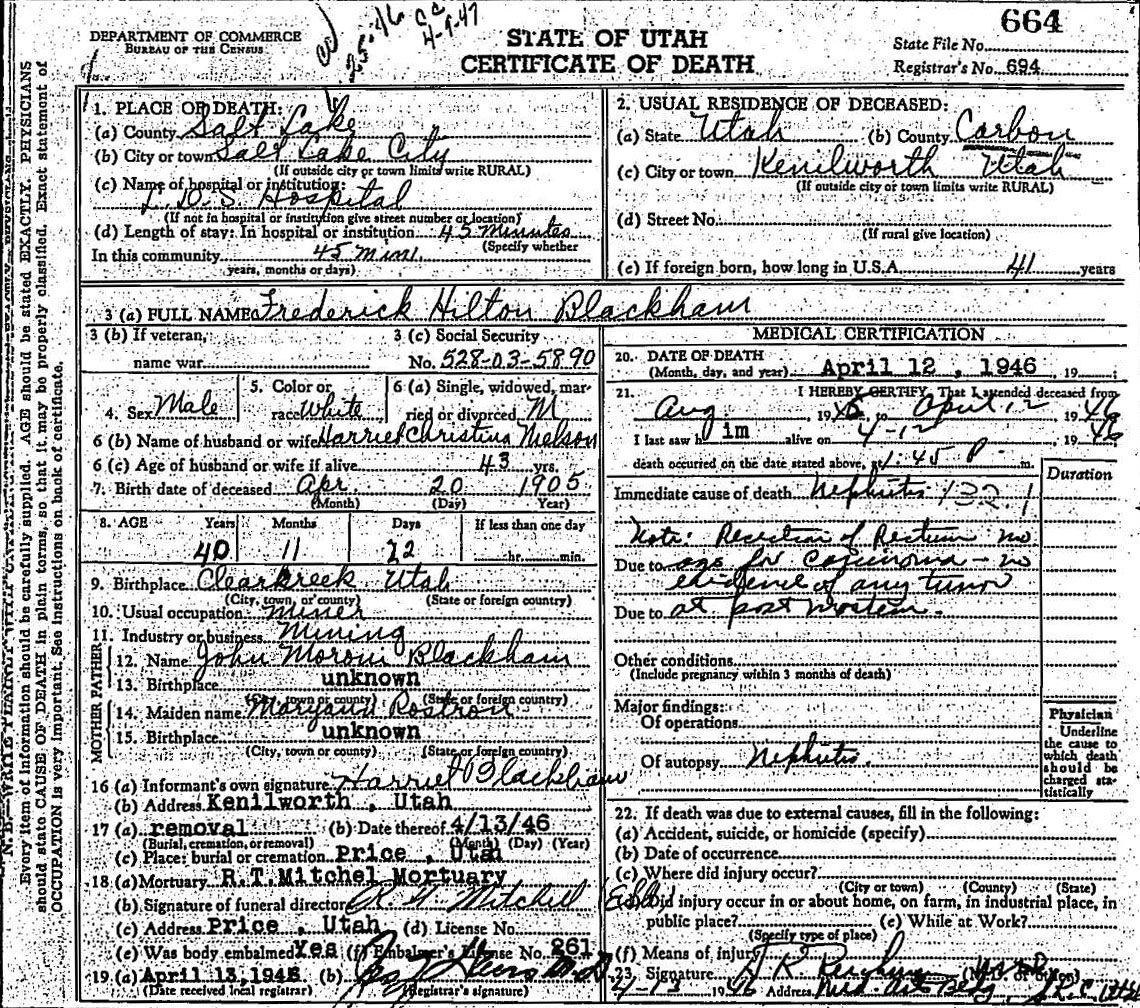 664
DEPARTMENT OF COMMERCE
BUREAU OF THE CENSUS
4-9-47
STATE OF UTAH
CERTIFICATE OF DEATH
State File No.
Registrar's No. 694
Every item of information should be carefully supplied. AGE should be stated EXACTLY. PHYSICIANS
should state CAUSE OF DEATH in plain terms, so that it may be properly classified. Exact statement of
OCCUPATION is very important. See instructions on back of certificate.
1. PLACE OF DEATH:
(a) County Salt Lake
(b) City or town Salt Lake City
(If outside city or town limits write RURAL)
(c) Name of hospital or institution:
L. D. S. Hospital
(If not in hospital or institution give street number or location)
(d) Length of stay: In hospital or institution 45 Minutes
(Specify whether
In this community 45 Min.
years, months or days)
2. USUAL RESIDENCE OF DECEASED:
(a) State Utah (b) County Carbon
(c) City or town Kenilworth Utah
(If outside city or town limits write RURAL)
(d) Street No.
(If rural give location)
(e) If foreign born, how long in U.S.A. 41 years
3 (a) FULL NAME Frederick Hilton Blackham
3 (b) If veteran,
name war
3 (c) Social Security
No. 528-03-5890
4. Sex Male
5. Color or
race White
6 (a) Single, widowed, mar-
ried or divorced M
6 (b) Name of husband or wife Harriet Christina Nielson
6 (c) Age of husband or wife if alive 43 yrs.
7. Birth date of deceased Apr 20 1905
(Month) (Day) Year)
8. AGE Years Months Days If less than one day
40 11 22 hr. min.
9. Birthplace Clearkreek Utah
(City, town, or county) (State or foreign country)
10. Usual occupation Miner
11. Industry or business Mining
FATHER
12. Name John Moroni Blackham
13. Birthplace unknown
(City, town or county) (State or foreign country)
MOTHER
14. Maiden name Maryann Rostron
15. Birthplace unknown
(City, town or county) (State or foreign country)
16 (a) Informant's own signature Harriet Blackham
(b) Address Kenilworth, Utah
17 (a) removal (b) Date thereof 4/13/46
(Burial, cremation, or removal) (Month) (Day) (Year)
(c) Place: burial or cremation Price, Utah
18 (a) Mortuary R.T. Mitchel Mortuary
(b) Signature of funeral director R T Mitchell
(c) Address Price, Utah (d) License No.
(e) Was body embalmed Yes (f) Embalmer's License No. 261
19 (a) April 13, 1946 (b)
(Date received local registrar) (Registrar's signature)
MEDICAL CERTIFICATION
20. DATE OF DEATH
(Month, day, and year) April 12, 1946, 19
21. I HEREBY CERTIFY, That I attended deceased from
Aug 1945 to April 12 1946
I last saw him alive on 4-12 1946
death occurred on the date stated above, at 1:45 P m.
Duration
Immediate cause of death Nephritis 132.1
Note: Resection of Rectum
Due to ago for Carcinoma - no
evidence of any tumor
Due to at post mortem.
Other conditions
(Include pregnancy within 3 months of death)
Major findings:
Of operations
Of autopsy Nephritis.
Physician
Underline
the cause to
which death
should be
charged sta-
tistically
22. If death was due to external causes, fill in the following:
(a) Accident, suicide, or homicide (specify)
(b) Date of occurrence
(c) Where did injury occur?
(City or town) (County) (State)
Did injury occur in or about home, on farm, in industrial place, in
public place? (e) While at Work?
(Specify type of place)
(f) Means of injury
23. Signature
4-13 1946 Address Med. Arts Bldg